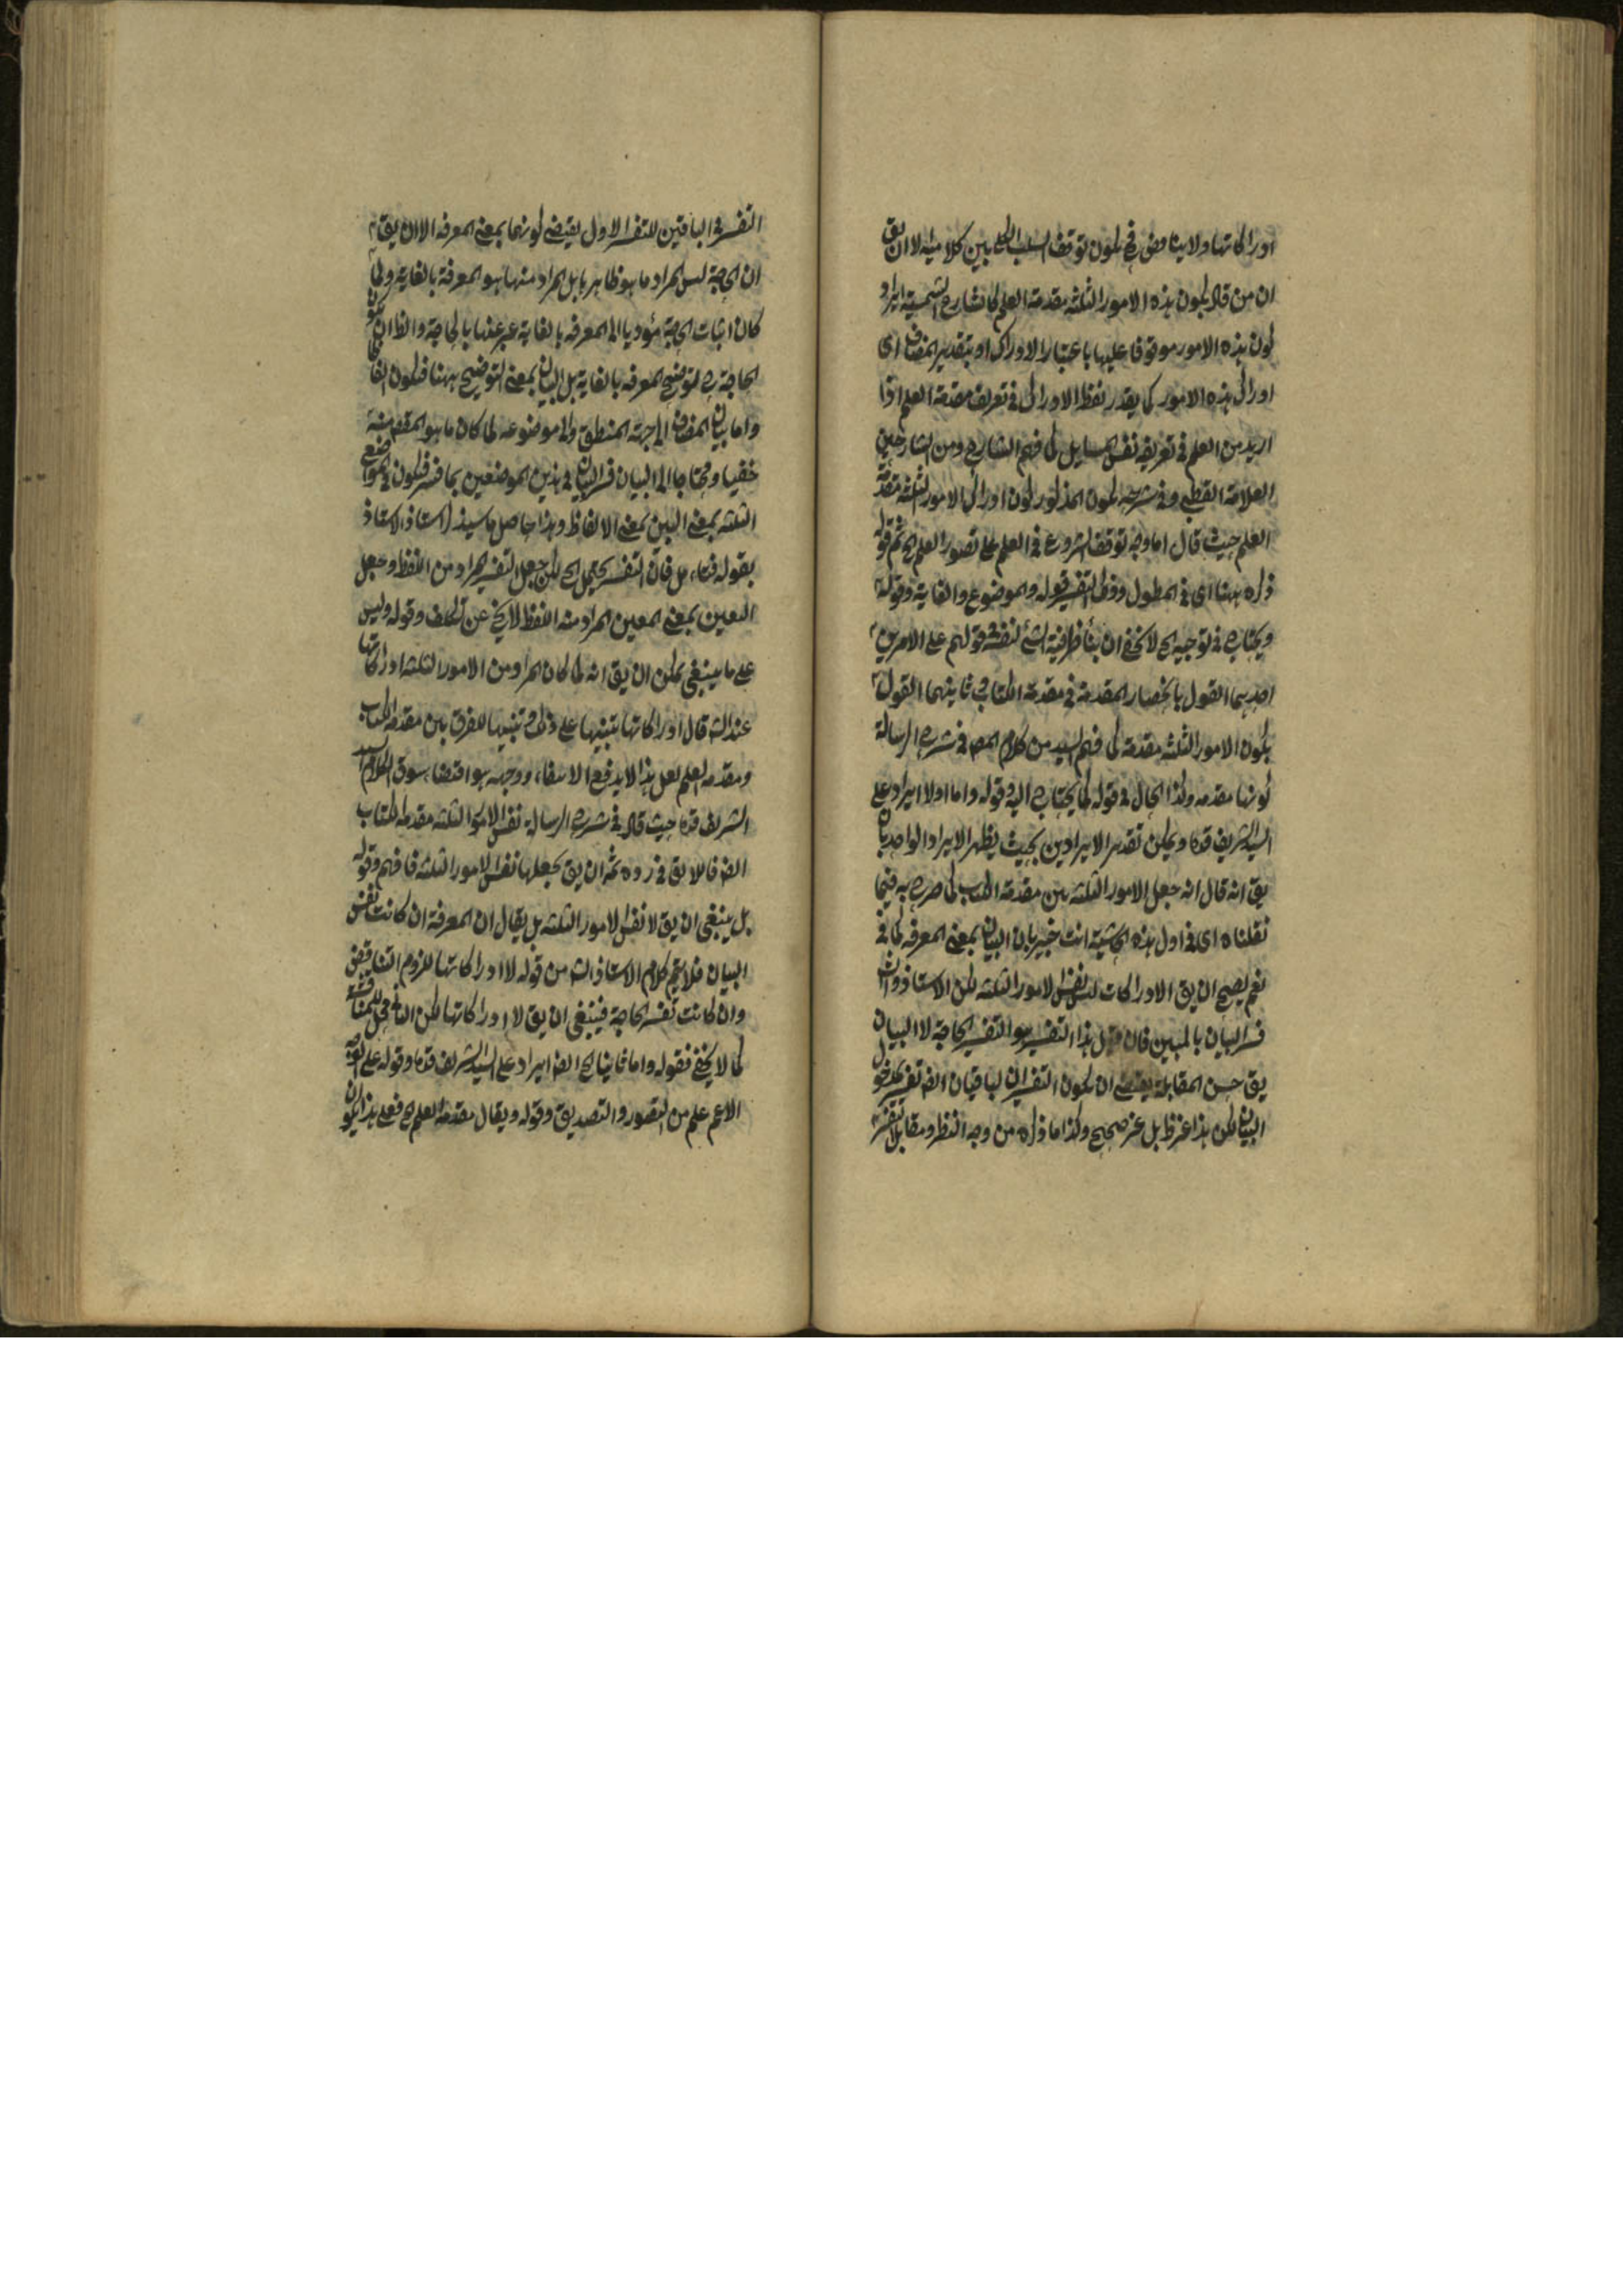 ادراكاتها ولا يناقض فح يكون توقف السلب الكلى بين كلاميه الا ان يق
ان من قال بكون هذه الامور الثلثه مقدمة العلم كالشارح الشمسية اراد
كون هذه الامور موقوفا عليها باعتبار الادراك او بتقدير المضاف اى
ادراك هذه الامور كما يقدر لفظ الادراك فى تعريف مقدمة العلم اذا
اريد من العلم فى تعريفه نفس المسايل كما فهم الشارح ومن الشارحين
العلامة القطبى وفى شرحه يكون المذكور كون ادراك الامور الثلثه مقدمة
العلم حيث قال اما وجه توقف الشروع فى العلم على تصور العلم الخ ثم قوله
ذكره ههنا اى فى المطول وقوله والموضوع والغاية وقوله
ويحتاج فى توجيه الخ لا يخفى ان بناء ظرفية الشئ لنفسه قولهم على الامرين
احديهما القول بانحصار المقدمة فى مقدمة الكتاب وثانيهما القول
بكون الامور الثلثه مقدمة كما فهم السيد من كلام المص فى شرح الرسالة
كونها مقدمه وكذا الحال فى قوله كما يحتاج اليه وقوله واما اولا ايراد على
السيد الشريف قده ويمكن تقدير الايرادين بحيث يظهر الايراد الواحد بان
يق انه قال انه جعل الامور الثلثه من مقدمة الكتاب كما صرح به فيما
نقلناه اى فى اول هذه الحاشية انت خبير بان البيان بمعنى المعرفه كما فى
نعم يصح ان يق الادراكات ليس نفس الامور الثلثه لكن الاستاذ
فسر البيان بالمبين فان قيل هذا التفسير هو التفسير الحاجة لا البيان
يق حسن المقابلة يقتضى ان يكون التفسيران الباقيان ايضا تفسير
البيان لكن هذا غير ظ بل غير صحيح وكذا ما ذكره من وجه النظر ومقابلة
التفسيرين الباقيين للتفسير الاول يقتضى كونهما بمعنى المعرفه الا ان يق
ان الحاجة ليس المراد ما هو ظاهرها بل المراد منها هو المعرفة بالغاية ولما
كان اثبات الحاجة مؤديا الى المعرفه بالغاية عبر عنها بالحاجة والظ ان يكون
الحاجة توضيح المعرفه بالغاية بل البيان بمعنى التوضيح ههنا فيكون
واما بيان المضاف الى جهة المنطق والى موضوعه لما كان ما هو المقص منه
خفيا ومحتاجا الى البيان فسر البيان فى هذين الموضعين بما فسر فيكون فى المواضع
الثلثه بمعنى المبين بمعنى الالفاظ وهذا حاصل ما سيذكر استاذ الاستاذ
بقوله فتامل فان التفسير يحتمل الخ لكن جعل التفسير المراد من اللفظ وجعل
التعيين بمعنى المعين المراد منه اللفظ لا يخ عن تكلف وقوله وليس
على ما ينبغى يمكن ان يق انه لما كان المراد من الامور الثلثه ادراكاتها
عند الش قال ادراكاتها تنبيها على ذلك وتنبيها للفرق بين مقدمة الكتاب
ومقدمه العلم لعل هذا لا يدفع الاستفاء ووجهه هو اقتضاء سوق الكلام السيد
الشريف قده حيث قال فى شرح الرسالة نفس الامور الثلثه مقدمة الكتاب
ايضا فاللايق فى رده ثمه ان يق بجعلها نفس الامور الثلثه فافهم وقوله
بل ينبغى ان يق لا نفس الامور الثلثه بل يقال ان المعرفة ان كانت نفس
البيان فلا يتم كلام الاستاذ الش من قوله لا ادراكاتها للزوم التناقض
وان كانت تفسير الحاجة فينبغى ان يق لا ادراكاتها لكن محل المناقشة
كما لا يخفى فقوله واما ثانيا الخ ايضا ايراد على السيد الشريف قده وقوله على الوجه
الاعم علم من التصور والتصديق وقوله ويقال مقدمة العلم الخ فعلى هذا يكون